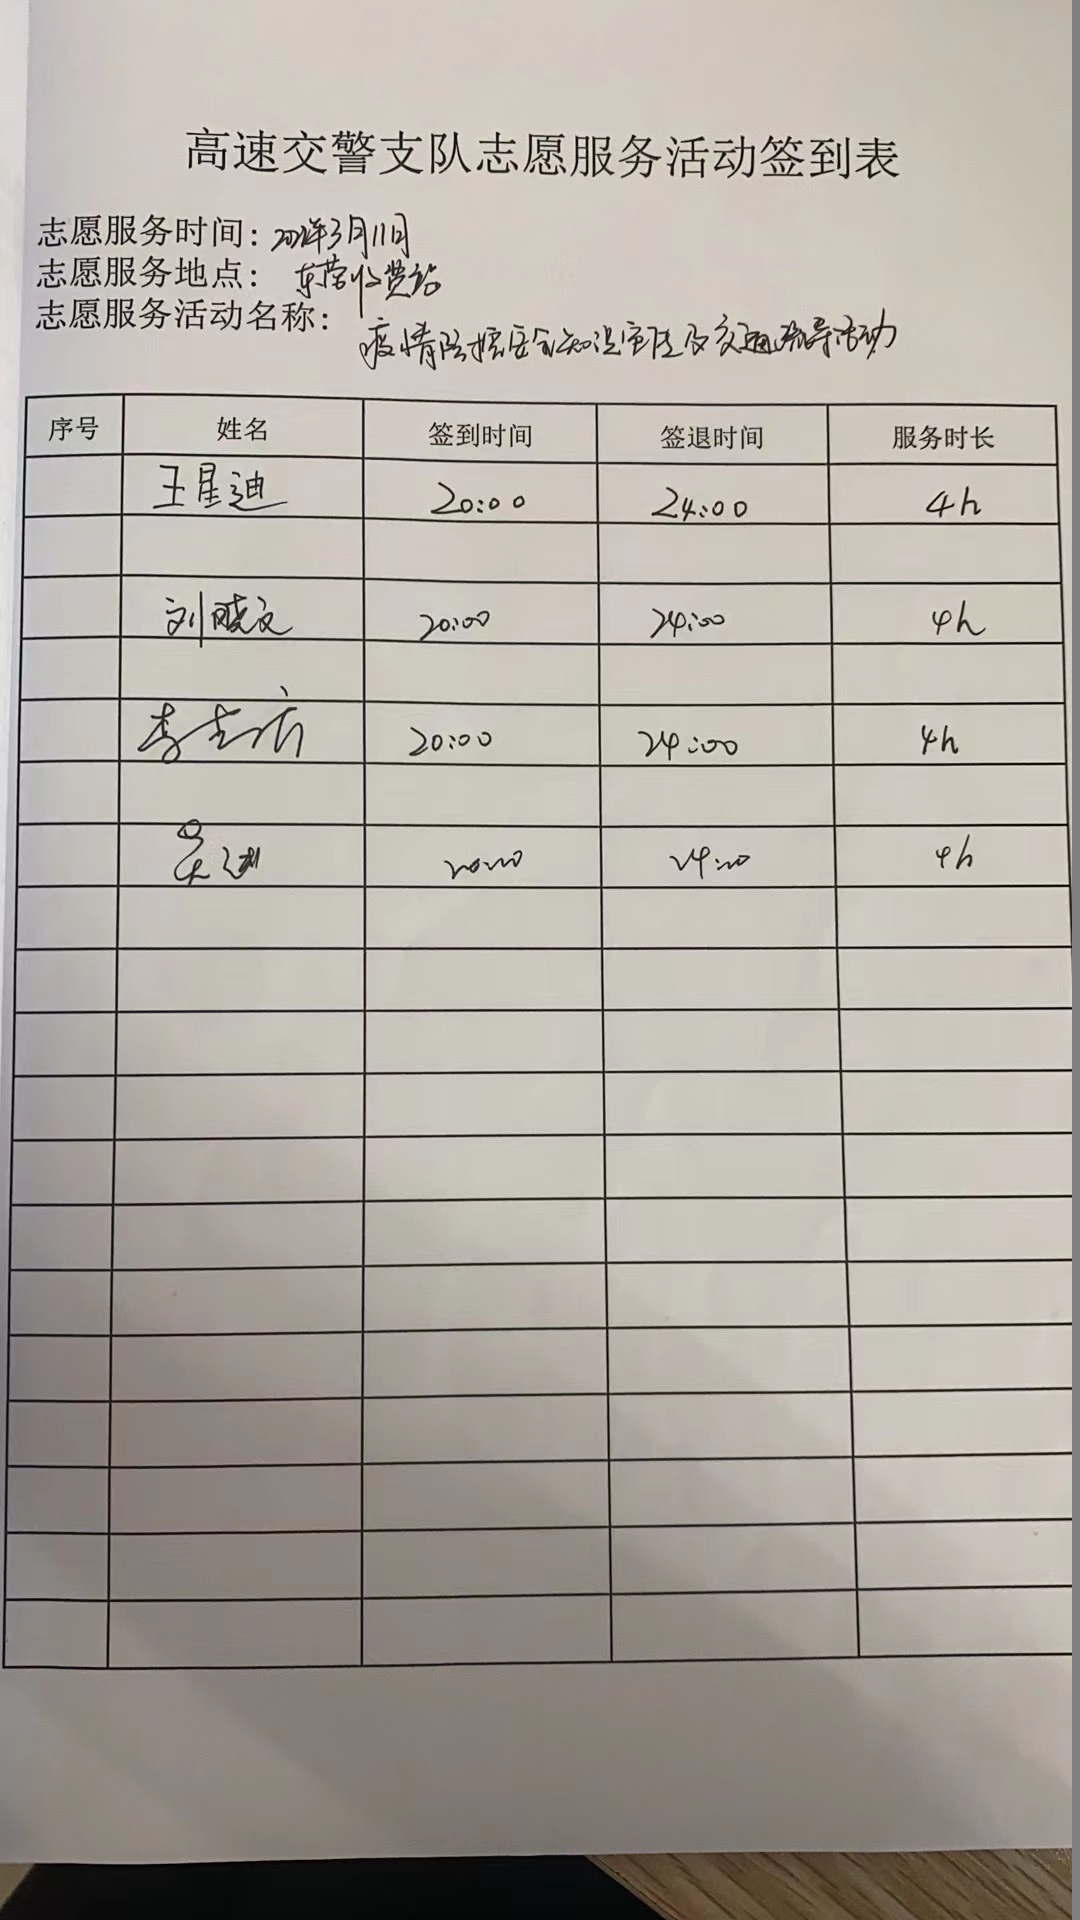 高速交警支队志愿服务活动签到表
志愿服务时间: 2022年3月11日
志愿服务地点: 东营收费站
志愿服务活动名称: 疫情防控安全知识宣传及交通疏导活动
序号 姓名 签到时间 签退时间 服务时长
王星迪 20:00 24:00 4h
刘晓文 20:00 24:00 4h
李 20:00 24:00 4h
吴 20:00 24:00 4h